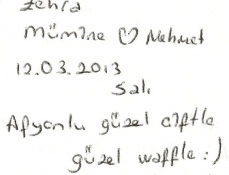 zehra
mümine ♡ Mehmet
12.03.2013
salı
Afyonlu güzel çiftle
güzel waffle :)